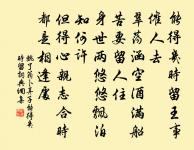 能得幾時留王事
催人去
翠荷涵空酒滿船
苦要留人住
身世兩悠悠飄泊
知何許
但得心親志合時
都是相逢處
卜算子能得幾
時留詞典網集